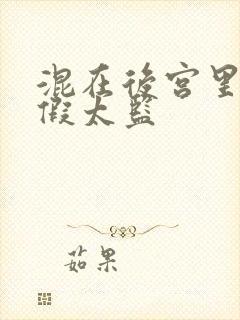 混在後宮里
假太監
茹果